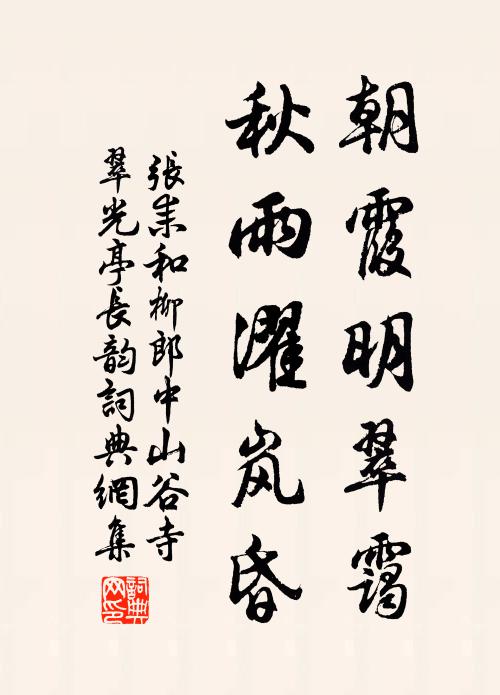 朝霞明翠靄
秋雨濯岚昏
張耒和柳郎中山谷寺
翠光亭長韵詞典網集
詞典網印